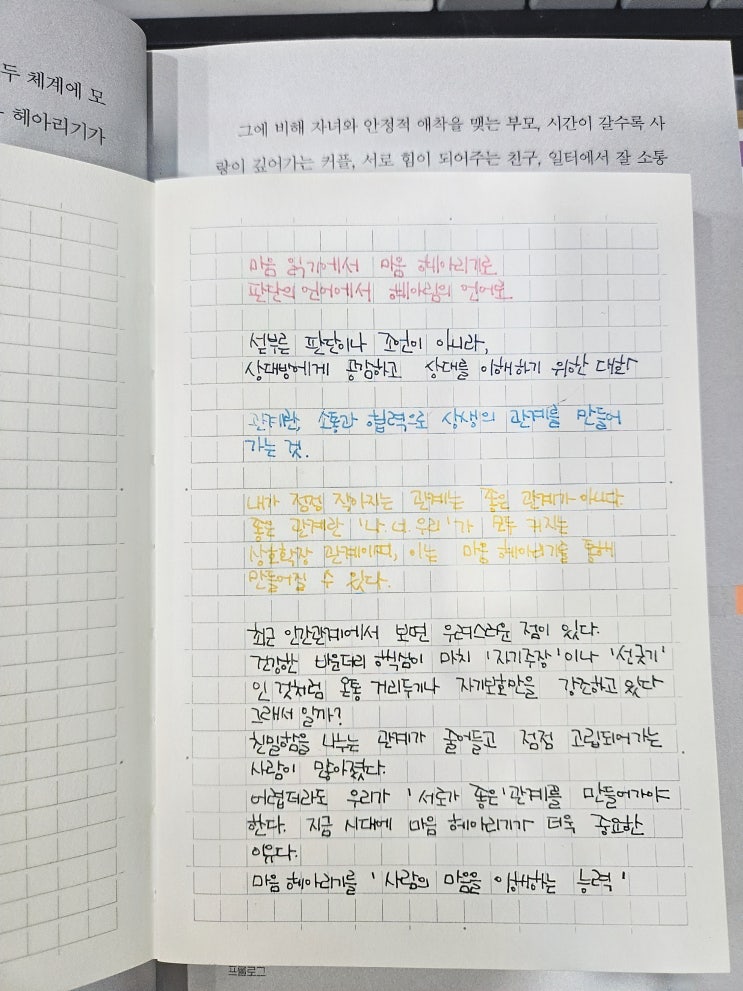 두 체계에 모
헤아리기가
그에 비해 자녀와 안정적 애착을 맺는 부모, 시간이 갈수록 사
랑이 깊어가는 커플, 서로 힘이 되어주는 친구, 일터에서 잘 소통
마음 읽기에서 마음 헤아리기로
판단의 언어에서 헤아림의 언어로
섣부른 판단이나 조언이 아니라,
상대방에게 공감하고 상대를 이해하기 위한 대화
관계란, 소통과 협력으로 상생의 관계를 만들어
가는 것.
내가 점점 작아지는 관계는 좋은 관계가 아니다.
좋은 관계란 '나.너.우리'가 모두 커지는
상호확장 관계이며, 이는 마음 헤아리기를 통해
만들어질 수 있다.
최근 인간관계에서 보면 우려스러운 점이 있다.
건강한 바운더리 핵심이 마치 '자기주장'이나 '선긋기'
인 것처럼 온통 거리두기나 자기보호만을 강조하고 있다
그래서 일까?
친밀함을 나누는 관계가 줄어들고 점점 고립되어가는
사람이 많아졌다.
어렵더라도 우리가 '서로가 좋은'관계를 만들어가야
한다. 지금 시대에 마음 헤아리기가 더욱 중요한
이유다.
마음 헤아리기를 '사람의 마음을 이해하는 능력'
프롤로그